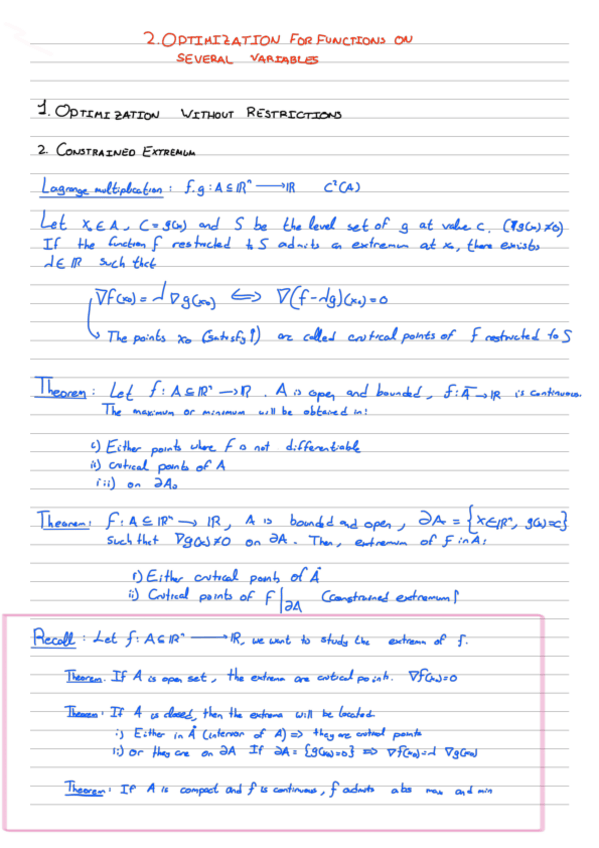 2. OPTIMIZATION FOR FUNCTIONS ON
SEVERAL VARIABLES
1. OPTIMIZATION WITHOUT RESTRICTIONS
2. CONSTRAINED EXTREMUM
Lagrange multiplication : f.g : A ⊆ ℝⁿ → ℝ C²(A)
Let x₀ ∈ A, C = g(x₀) and S be the level set of g at value c. (∇g(x₀) ≠ 0)
If the function f restricted to S admits an extremum at x₀, there exists
λ ∈ ℝ such that
∇f(x₀) = λ ∇g(x₀) ⟺ ∇(f-λg)(x₀) = 0
The points x₀ (satisfy ↑) are called critical points of f restricted to S
Theorem : Let f : A ⊆ ℝⁿ → ℝ. A is open and bounded, f : A̅ → ℝ is continuous.
The maximum or minimum will be obtained in :
i) Either points where f is not differentiable
ii) critical points of A
iii) on ∂A.
Theorem : f : A ⊆ ℝⁿ → ℝ, A is bounded and open, ∂A = {x ∈ ℝⁿ, g(x) = c}
such that ∇g(x) ≠ 0 on ∂A. Then, extremum of f in A :
i) Either critical points of Å
ii) Critical points of f|∂A (constrained extremum)
Recall : Let f : A ⊆ ℝⁿ → ℝ, we want to study the extrema of f.
Theorem. If A is open set, the extrema are critical points. ∇f(x₀) = 0
Theorem : If A is closed, then the extrema will be located
i) Either in Å (interior of A) ⇒ they are critical points
ii) or they are on ∂A If ∂A = {g(x) = 0} ⇒ ∇f(x₀) = λ ∇g(x₀)
Theorem : If A is compact and f is continuous, f admits abs max and min